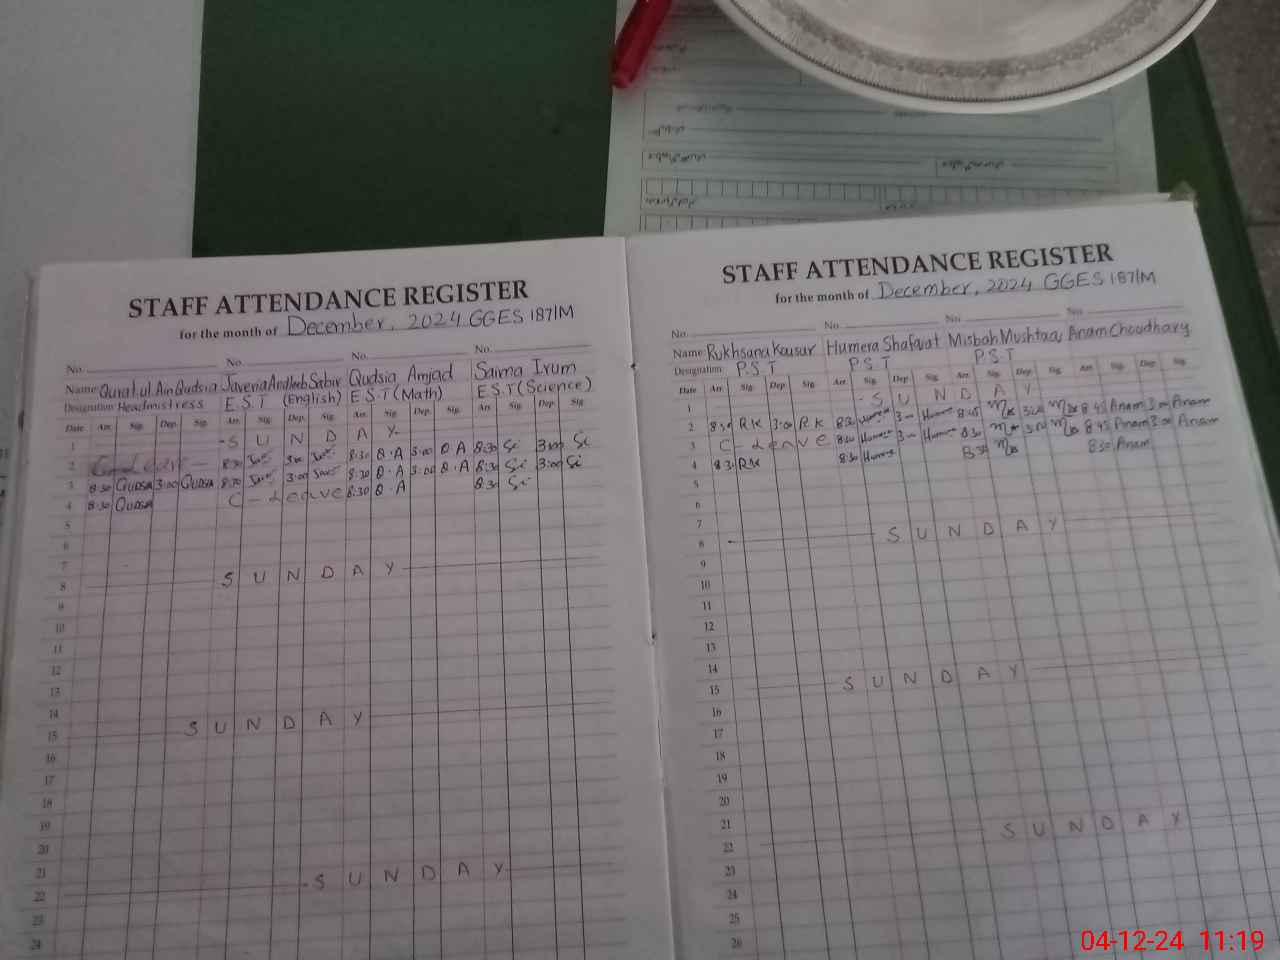 STAFF ATTENDANCE REGISTER
for the month of December, 2024 GGES 187/M
No. No. No. No.
Name Qurat ul Ain Qudsia Javeria Andleeb Sabir Qudsia Amjad Saima Irum
Designation Headmistress E.S.T (English) E.S.T (Math) E.S.T (Science)
Date Arr. Sig. Dep. Sig. Arr. Sig. Dep. Sig. Arr. Sig. Dep. Sig. Arr. Sig. Dep. Sig.
1 S U N D A Y
2 8:30 3:00 8:30 Q.A 3:00 Q.A 8:30 Si 3:00 Si
3 8:30 QUDSA 3:00 QUDSA 8:30 3:00 8:30 Q.A 3:00 Q.A 8:30 Si 3:00 Si
4 8:30 QUDSA C - Leave 8:30 Q.A 8:30 Si
5
6
7
8 S U N D A Y
9
10
11
12
13
14
15 S U N D A Y
16
17
18
19
20
21
22 S U N D A Y
23
24
STAFF ATTENDANCE REGISTER
for the month of December, 2024 GGES 187/M
No. No. No. No.
Name Rukhsana Kausar Humera Shafaat Misbah Mushtaq Anam Choudhary
Designation P.S.T P.S.T P.S.T
Date Arr. Sig. Dep. Sig. Arr. Sig. Dep. Sig. Arr. Sig. Dep. Sig. Arr. Sig. Dep. Sig.
1 S U N D A Y
2 8:30 RK 3:00 RK 8:30 Humera 3:00 Humera 8:45 8:45 Anam 3:00 Anam
3 C - Leave 8:30 Humera 3:00 Humera 8:30 8:45 Anam 3:00 Anam
4 8:30 RK 8:30 Humera 8:30 8:30 Anam
5
6
7
8 S U N D A Y
9
10
11
12
13
14
15 S U N D A Y
16
17
18
19
20
21
22 S U N D A Y
23
24
25
26
04-12-24 11:19